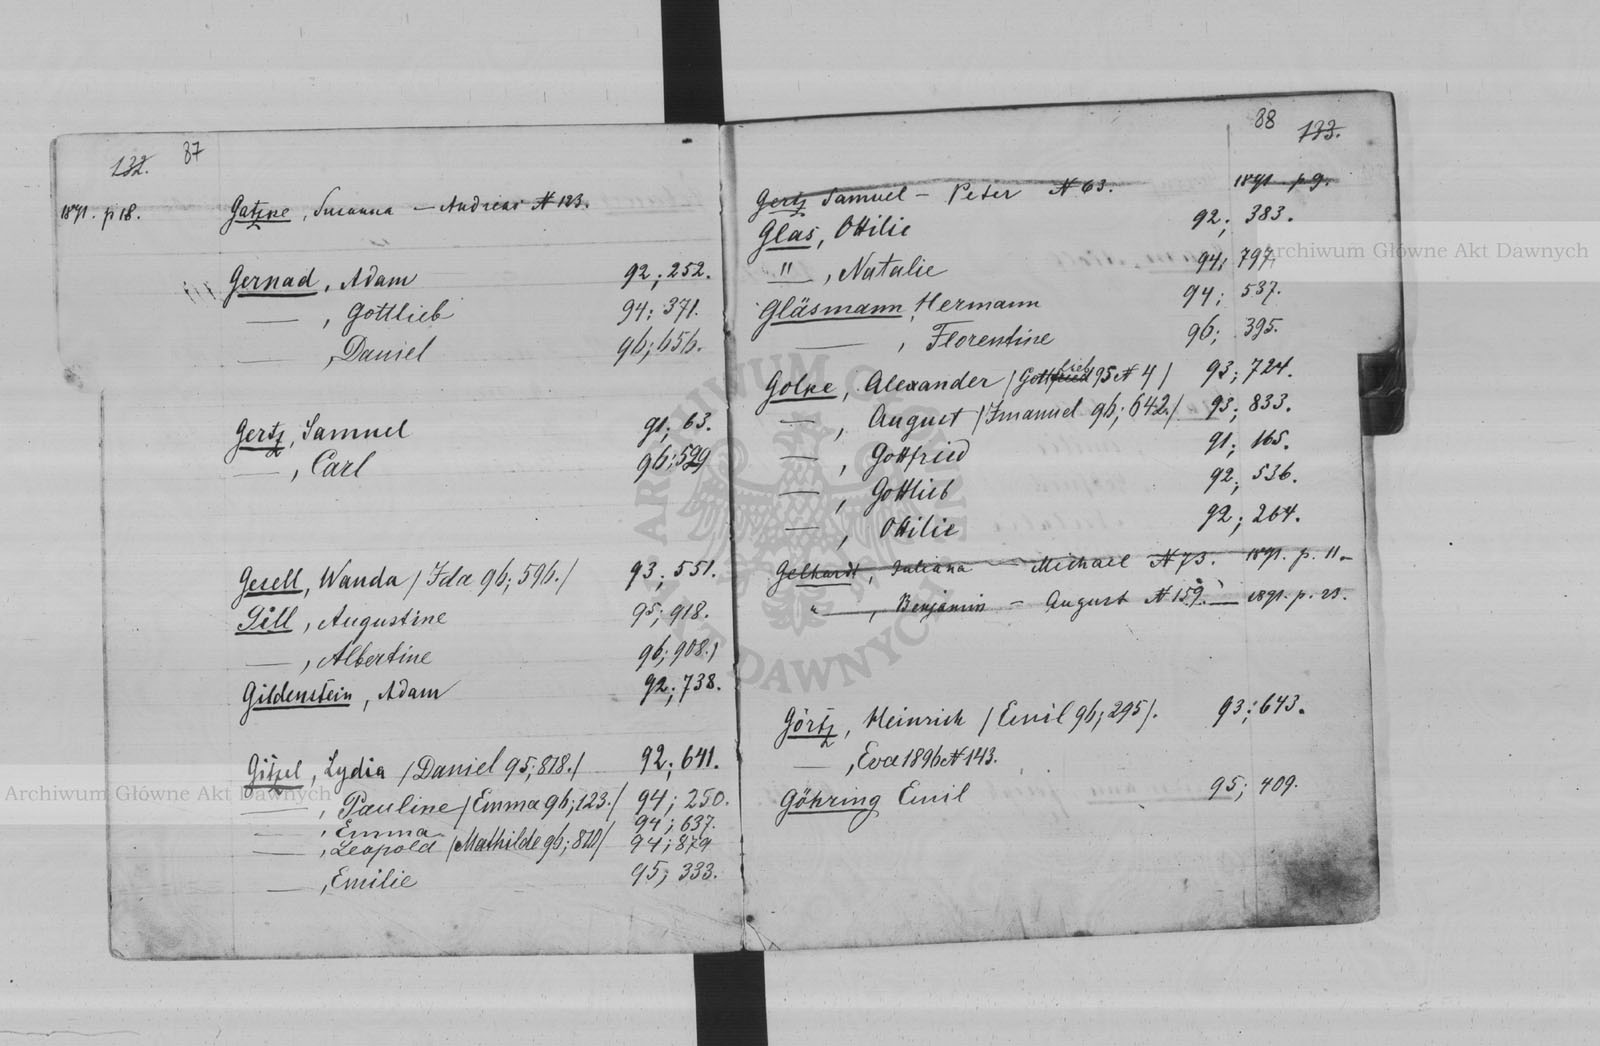 132. 87
1891. p 18. Gatzke, Susanna — Andreas № 123.
Gernad, Adam 92; 252.
—, Gottlieb 94; 371.
—, Daniel 96; 656.
Gertz, Samuel 91; 63.
—, Carl 96; 529
Gesell, Wanda /Ida 96; 596./ 93; 551.
Gill, Augustine 95; 918.
—, Albertine 96; 908.)
Gildenstein, Adam 92; 738.
Gitzel, Lydia /Daniel 95; 818./ 92; 641.
—, Pauline /Emma 96; 123./ 94; 250.
—, Emma 94; 637.
—, Leopold /Mathilde 96; 810/ 94; 879
—, Emilie 95; 333.
88 133.
Gertz Samuel — Peter № 63. 1891. p 9.
Glas, Ottilie 92; 383.
"—, Natalie 94; 797.
Gläsmann, Hermann 94; 537.
—, Florentine 96; 395.
Golke, Alexander /Gottlieb 95 № 4/ 93; 724.
—, August /Imanuel 96; 642./ 93; 833.
—, Gottfried 91; 165.
—, Gottlieb 92; 536.
—, Ottilie 92; 264.
Gelhardt, Juliana — Michael № 73. 1891. p. 11 —
"—, Benjamin — August № 159. — 1891. p. 23.
Görtz, Heinrich /Emil 96; 295/. 93; 643.
—, Eva 1896 № 143.
Göhring Emil 95; 409.
Archiwum Główne Akt Dawnych
Archiwum Główne Akt Dawnych